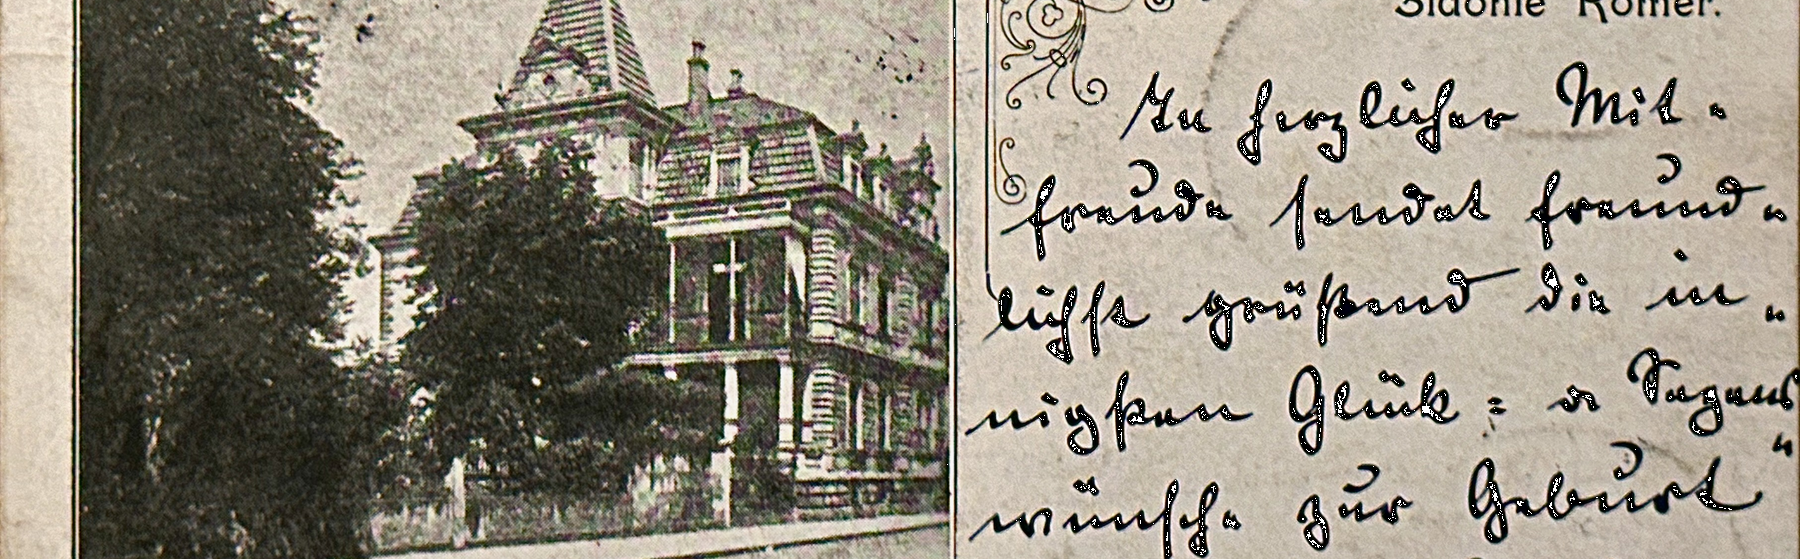 Sidonie Römer.
In herzlicher Mit-
freude sendet freund-
lichst grüßend die in-
nigsten Glück= u Segens
wünsche zur Geburt